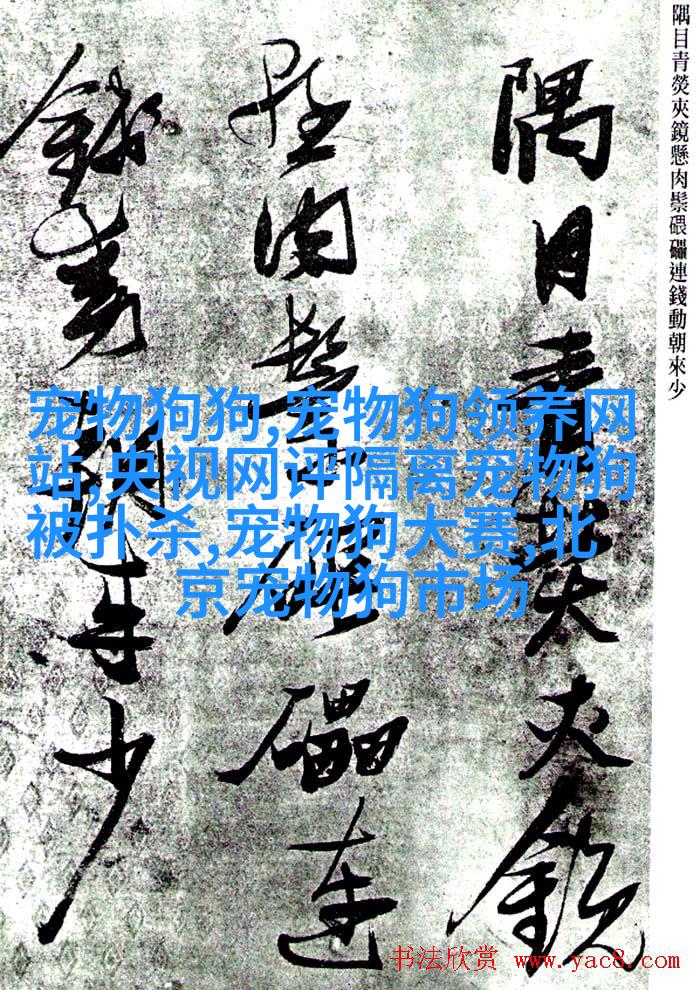 隅目青熒夾鏡懸肉鬃碨礧連錢動朝來少
隅目青熒夾鏡
懸肉鬃碨礧連
錢動朝來少
宠物狗狗,宠物狗领养网
站,央视网评隔离宠物狗
被扑杀,宠物狗大赛,北
京宠物狗市场
书法欣赏 www.yac8.com